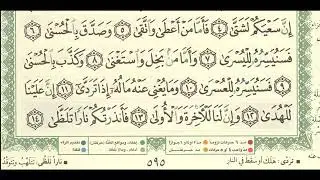 إِنَّ سَعْيَكُمْ لَشَتَّىٰ ٤ فَأَمَّا مَنْ أَعْطَىٰ وَاتَّقَىٰ ٥ وَصَدَّقَ بِالْحُسْنَىٰ ٦
فَسَنُيَسِّرُهُ لِلْيُسْرَىٰ ٧ وَأَمَّا مَنْ بَخِلَ وَاسْتَغْنَىٰ ٨ وَكَذَّبَ بِالْحُسْنَىٰ
٩ فَسَنُيَسِّرُهُ لِلْعُسْرَىٰ ١٠ وَمَا يُغْنِي عَنْهُ مَالُهُ إِذَا تَرَدَّىٰ ١١ إِنَّ عَلَيْنَا
لَلْهُدَىٰ ١٢ وَإِنَّ لَنَا لَلْآخِرَةَ وَالْأُولَىٰ ١٣ فَأَنْذَرْتُكُمْ نَارًا تَلَظَّىٰ ١٤
٥٩٥
تردى: هلك أو سقط في النار
نارا تلظى: تتلهب وتتوقد